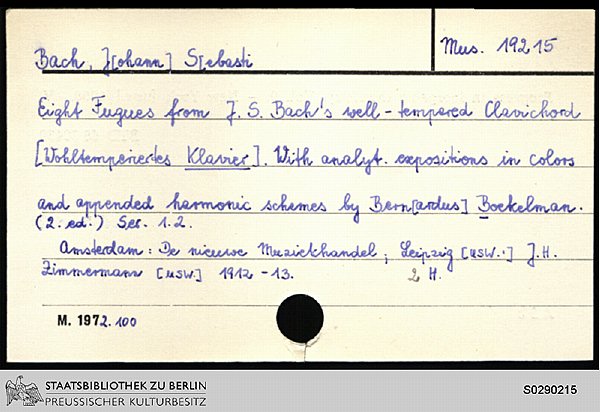 Mus. 19215
Bach, J[ohann] S[ebasti
Eight Fugues from J. S. Bach's well-tempered Clavichord
[Wohltemperiertes Klavier]. With analyt. expositions in colors
and appended harmonic schemes by Bern[ardus] Boekelman.
(2. ed.) Ser. 1.2.
Amsterdam: De nieuwe Muziekhandel; Leipzig [usw.:] J. H.
Zimmermann [usw.] 1912-13. 2 H.
M. 1972.100
STAATSBIBLIOTHEK ZU BERLIN
PREUSSISCHER KULTURBESITZ
S0290215